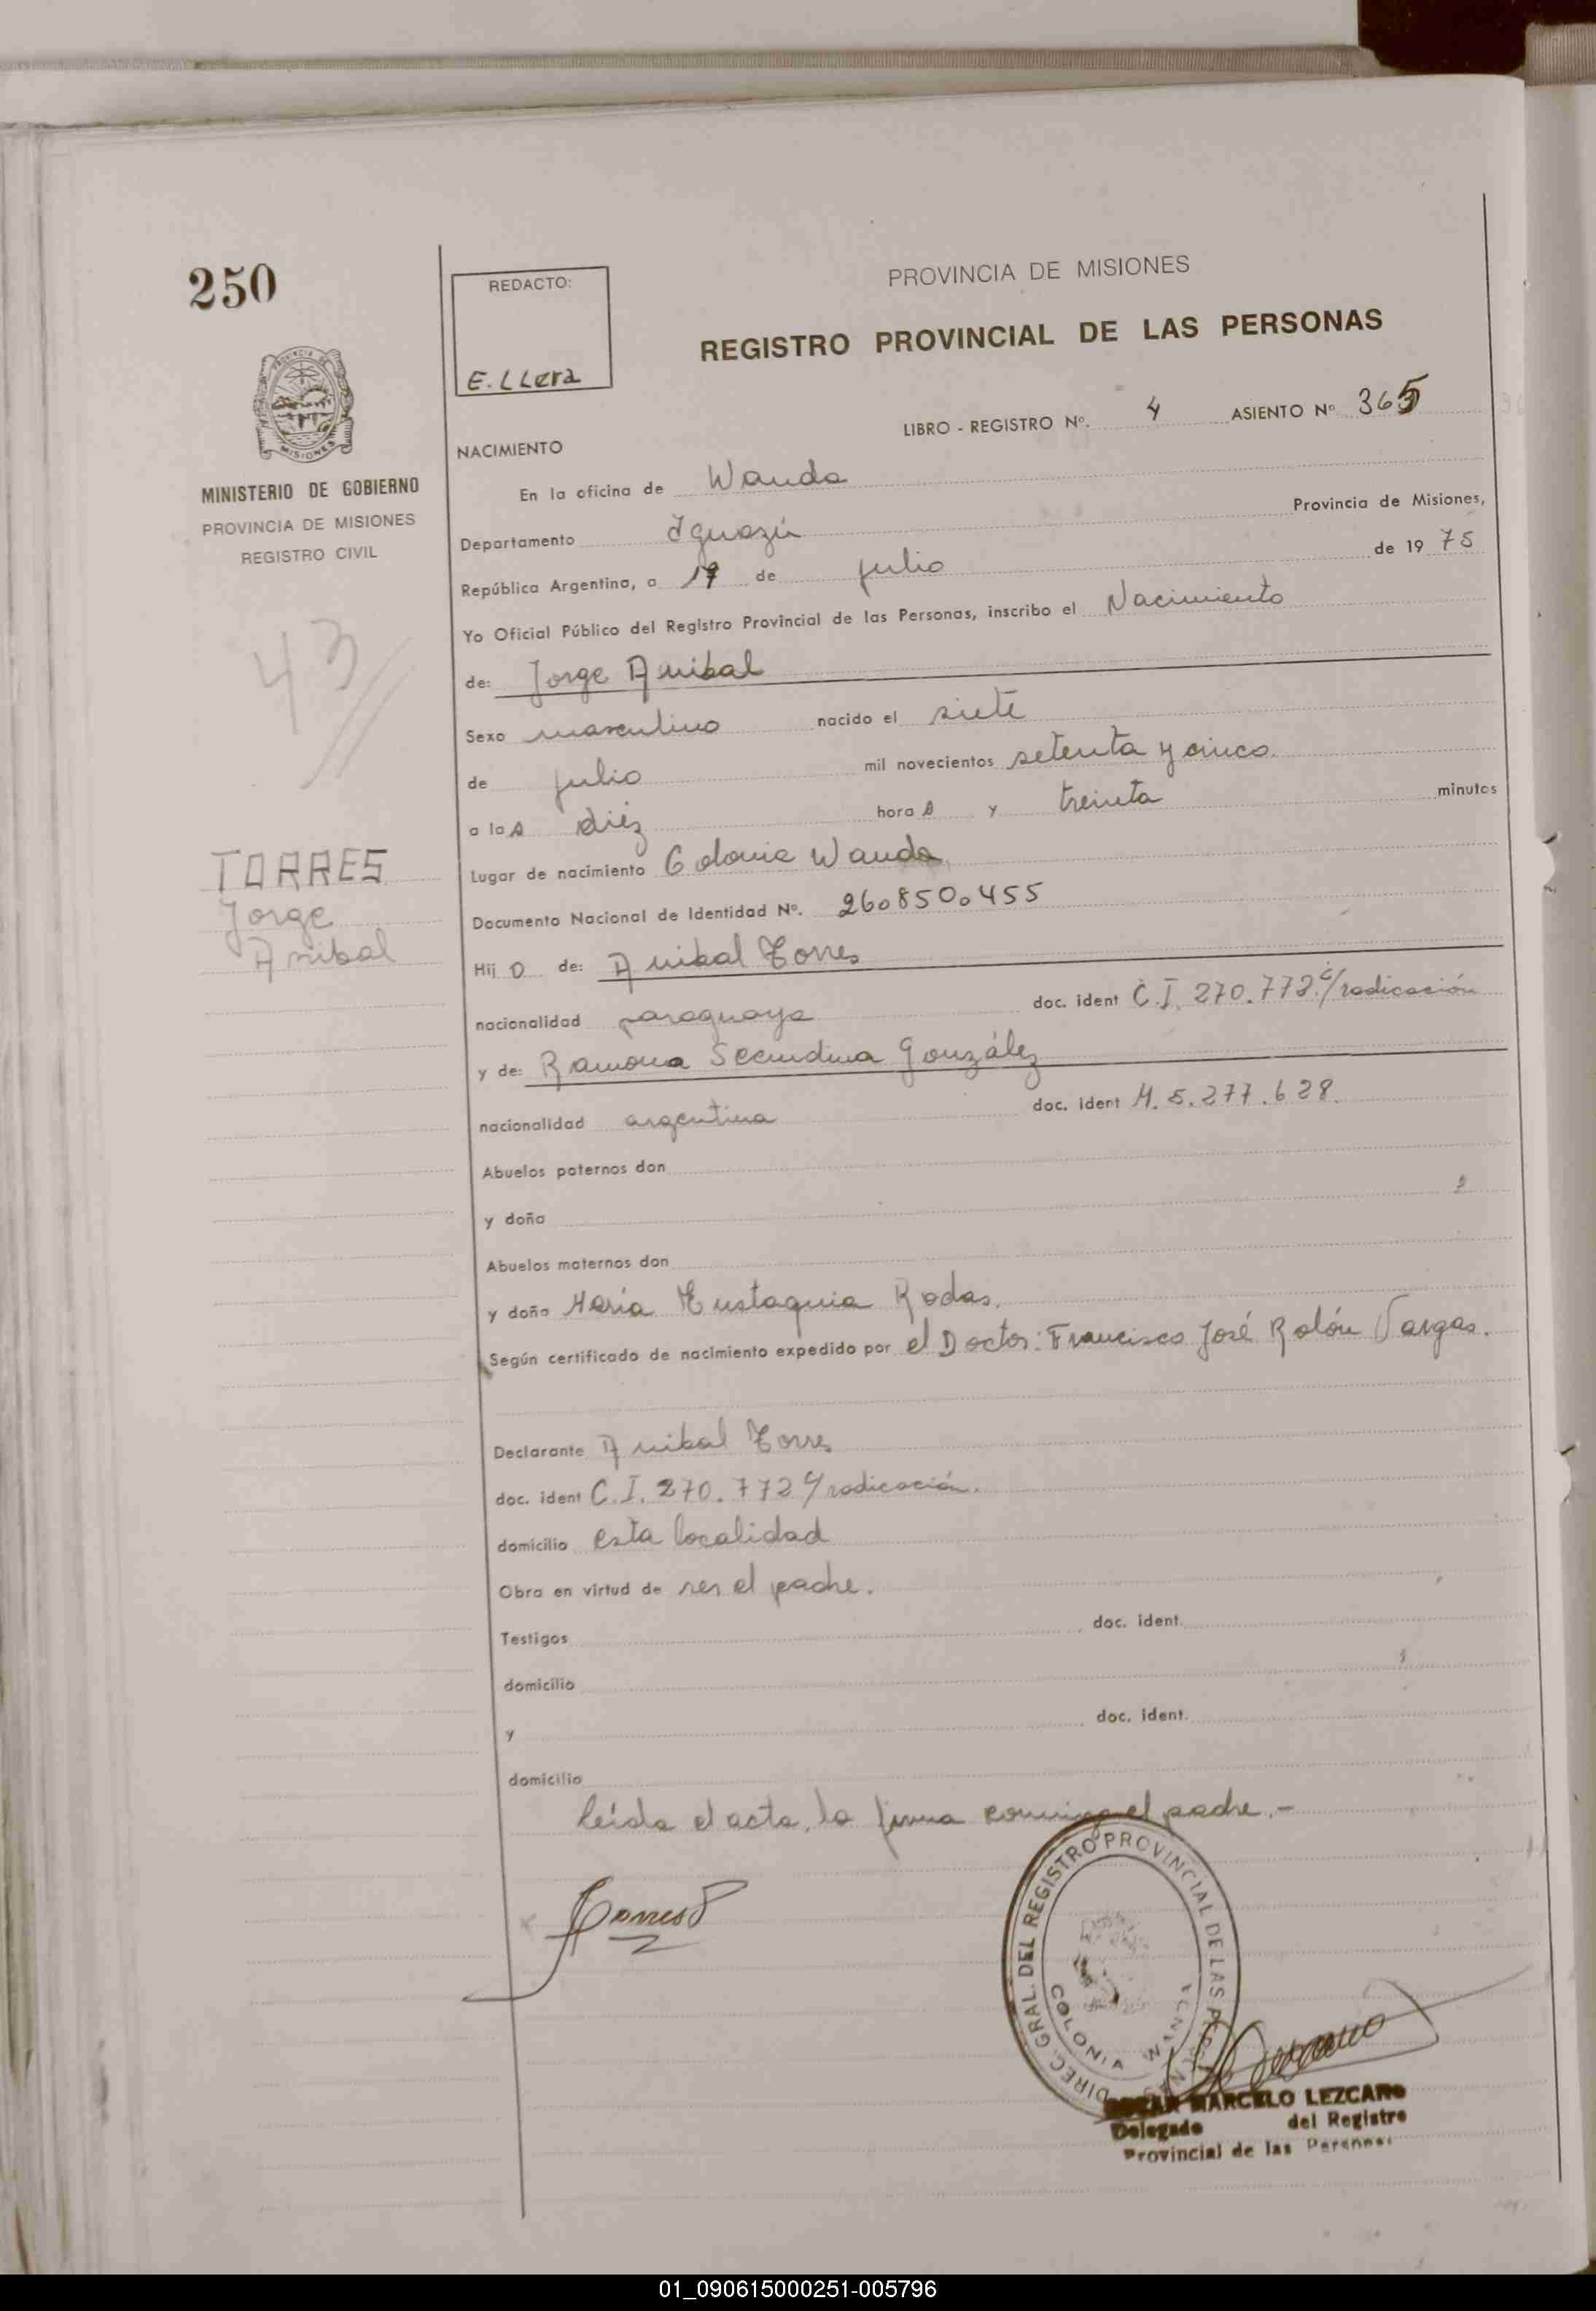 250
PROVINCIA DE MISIONES
MINISTERIO DE GOBIERNO
PROVINCIA DE MISIONES
REGISTRO CIVIL
43
TORRES
Jorge
Anibal
REDACTO:
E. LLera
PROVINCIA DE MISIONES
REGISTRO PROVINCIAL DE LAS PERSONAS
LIBRO - REGISTRO Nº. 4 ASIENTO Nº 365
NACIMIENTO
En la oficina de Wanda
Departamento Iguazú Provincia de Misiones,
República Argentina, a 17 de julio de 19 75
Yo Oficial Público del Registro Provincial de las Personas, inscribo el Nacimiento
de: Jorge Anibal
Sexo masculino nacido el siete
de julio mil novecientos setenta y cinco.
a las diéz horas y treinta minutos
Lugar de nacimiento Colonia Wanda
Documento Nacional de Identidad Nº. 260850.455
Hijo de: Anibal Torres
nacionalidad paraguaya doc. ident C.I. 270.772 c/radicación
y de: Ramona Secundina González
nacionalidad argentina doc. ident M. 5.277.628.
Abuelos paternos don
y doña
Abuelos maternos don
y doña María Eustaquia Rodas.
Según certificado de nacimiento expedido por el Doctor: Francisco José Rolón Vargas.
Declarante Anibal Torres
doc. ident C.I. 270.772 c/radicación.
domicilio esta localidad
Obra en virtud de ser el padre.
Testigos doc. ident.
domicilio
y doc. ident.
domicilio
leída el acta, la firma conmigo el padre.-
Torres
DIREC. GRAL. DEL REGISTRO PROVINCIAL DE LAS PERSONAS
COLONIA WANDA
MARCELO LEZCANO
Delegado del Registro
Provincial de las Personas
01_090615000251-005796